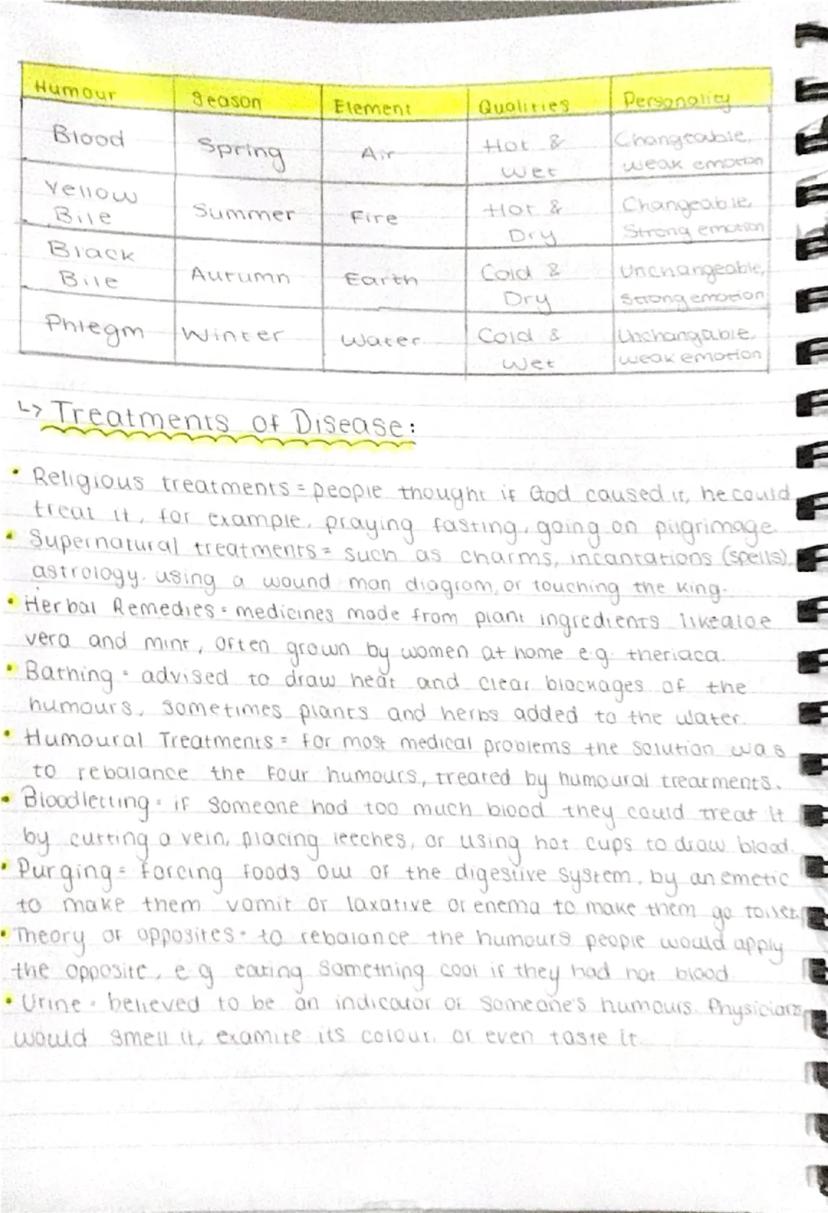 Humour Season Element Qualities Personality
Blood Spring Air Hot & Wet Changeable, weak emotion
Yellow Bile Summer Fire Hot & Dry Changeable, Strong emotion
Black Bile Autumn Earth Cold & Dry Unchangeable, strong emotion
Phlegm Winter Water Cold & Wet Unchangable, weak emotion
↳ Treatments of Disease:
• Religious treatments = people thought if God caused it, he could
treat it, for example, praying fasting, going on pilgrimage
• Supernatural treatments = such as charms, incantations (spells),
astrology, using a wound man diagram, or touching the king.
• Herbal Remedies = medicines made from plant ingredients like aloe
vera and mint, often grown by women at home e.g. theriaca.
• Bathing = advised to draw heat and clear blockages of the
humours, sometimes plants and herbs added to the water.
• Humoural Treatments = for most medical problems the solution was
to rebalance the four humours, treated by humoural treatments.
• Bloodletting = if someone had too much blood they could treat it
by cutting a vein, placing leeches, or using hot cups to draw blood.
• Purging = forcing foods out of the digestive system, by an emetic
to make them vomit or laxative or enema to make them go toilet
• Theory of opposites = to rebalance the humours people would apply
the opposite, e.g eating something cool if they had hot blood
• Urine = believed to be an indicator of someone's humours. Physicians
would smell it, examite its colour, or even taste it